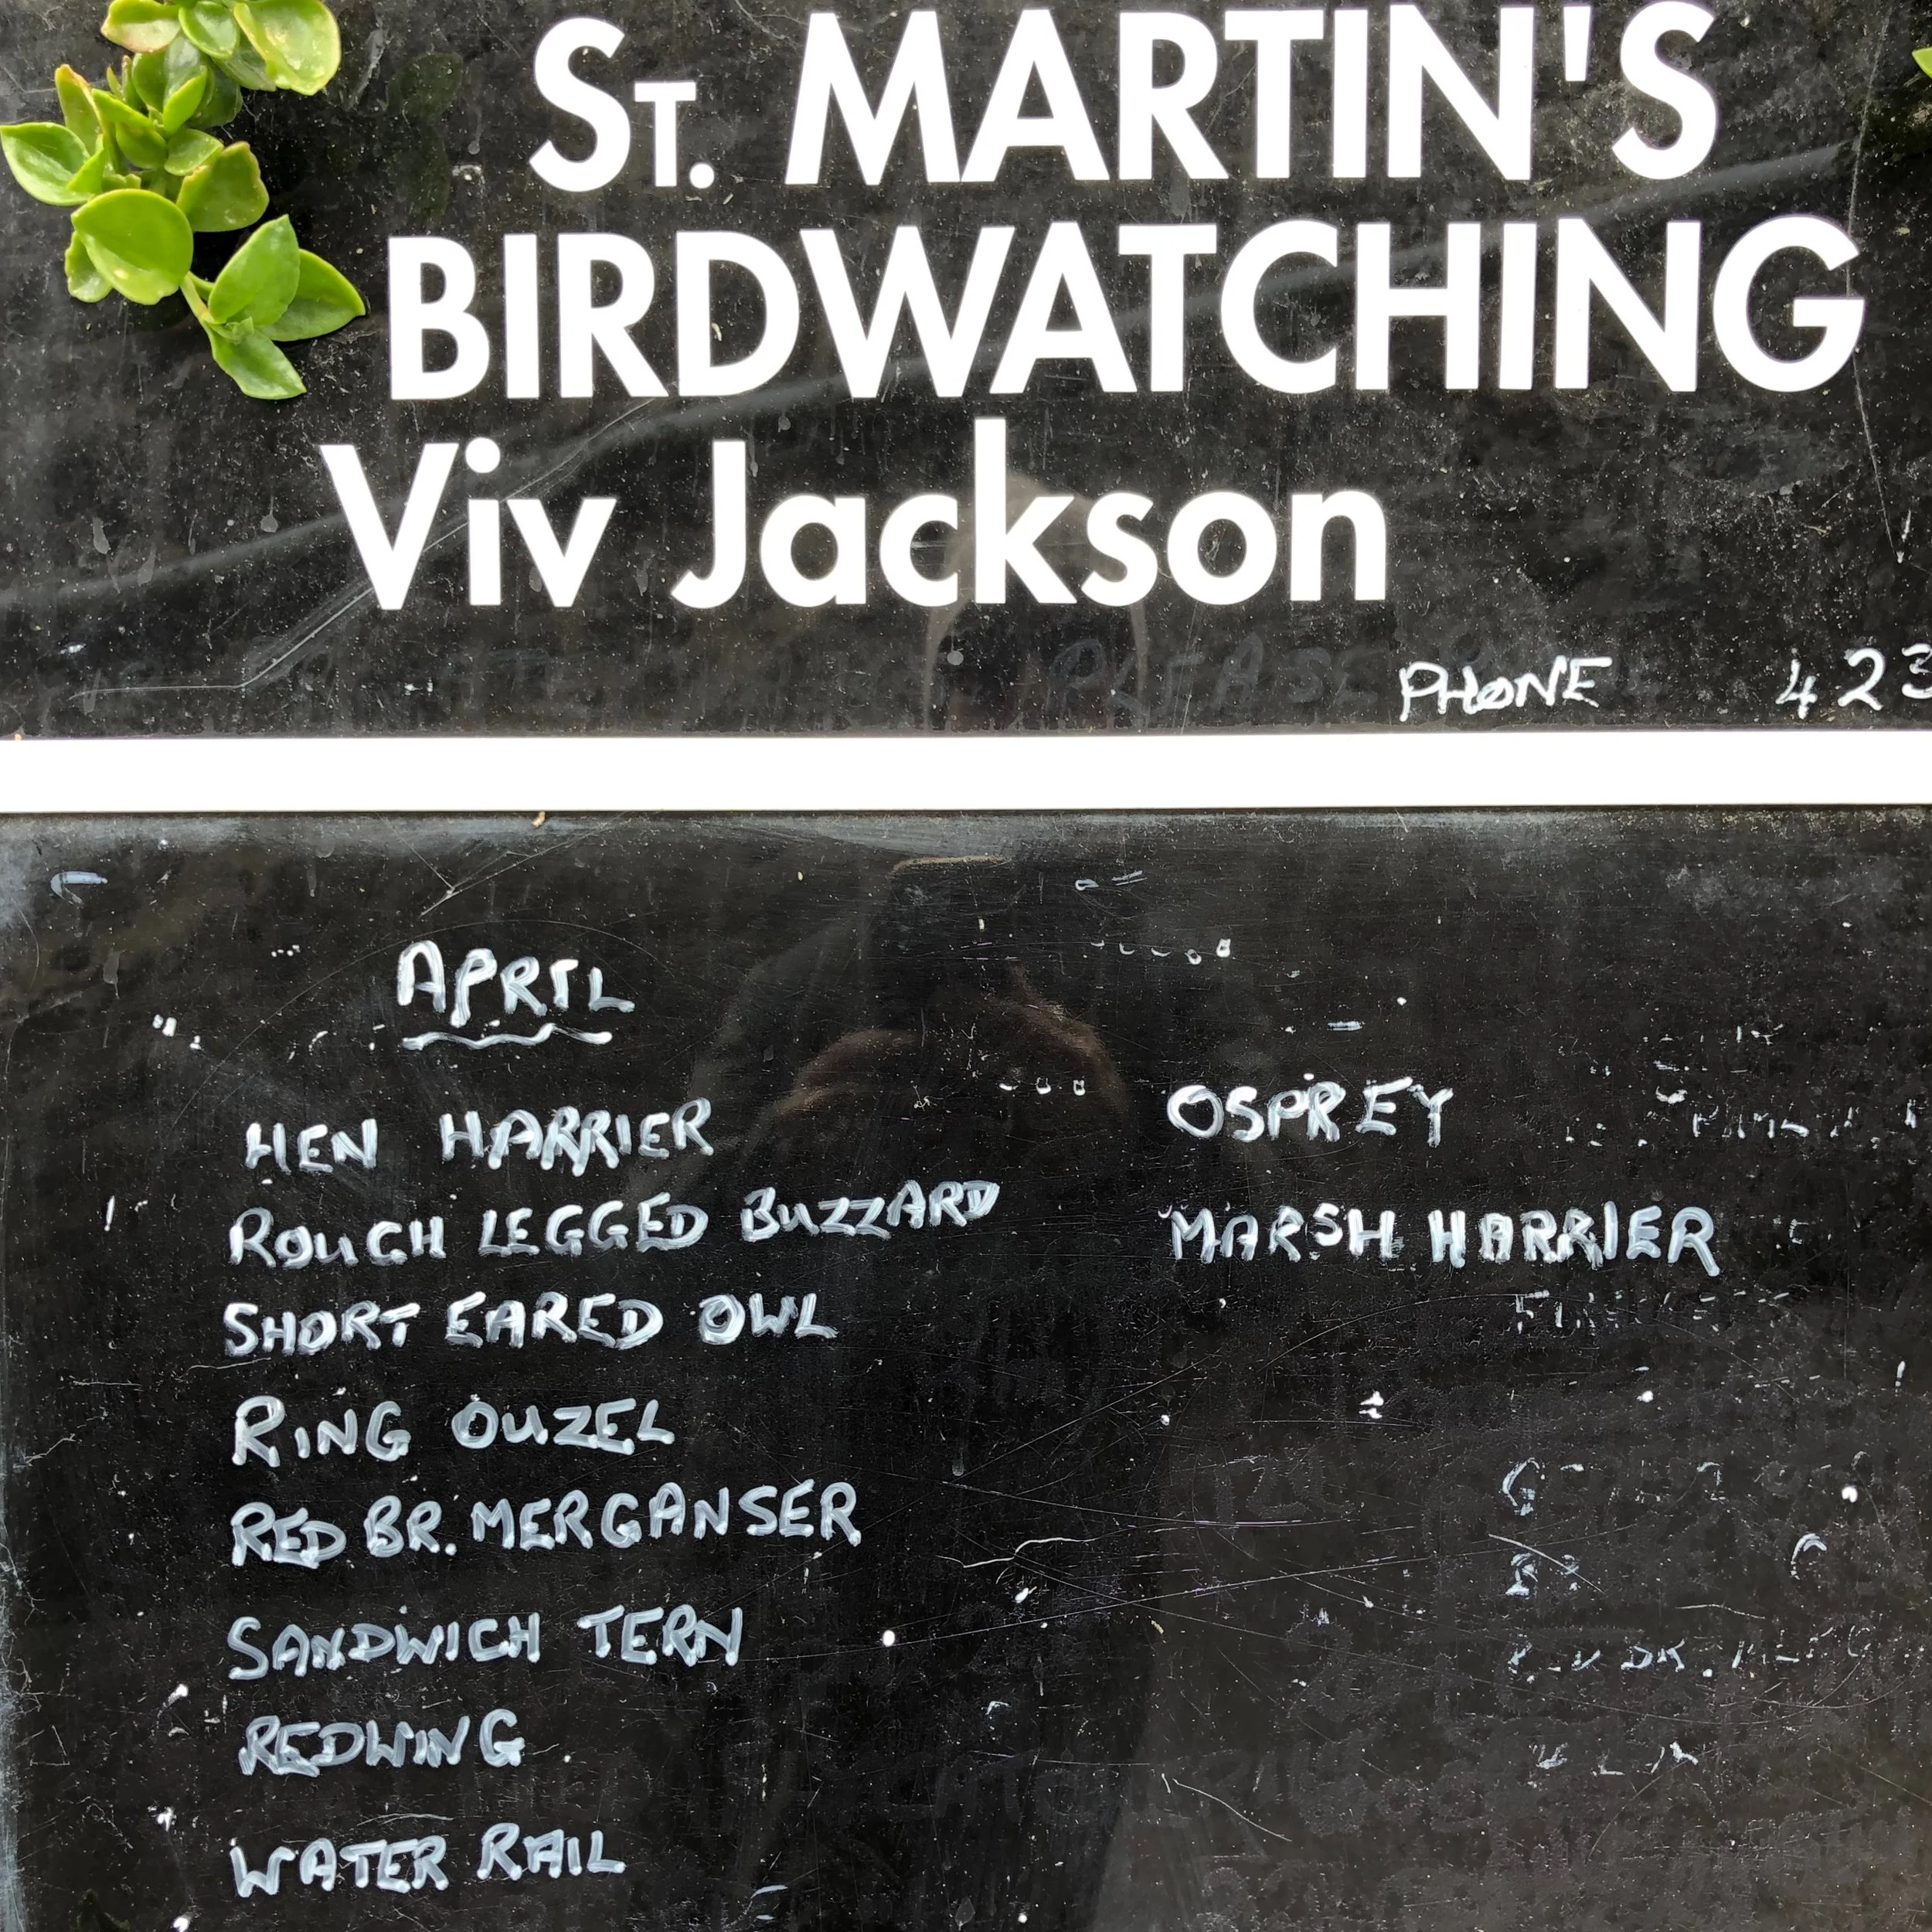 ST. MARTIN'S
BIRDWATCHING
Viv Jackson
PHONE 423
APRIL
HEN HARRIER
ROUGH LEGGED BUZZARD
SHORT EARED OWL
RING OUZEL
RED BR. MERGANSER
SANDWICH TERN
REDWING
WATER RAIL
OSPREY
MARSH HARRIER